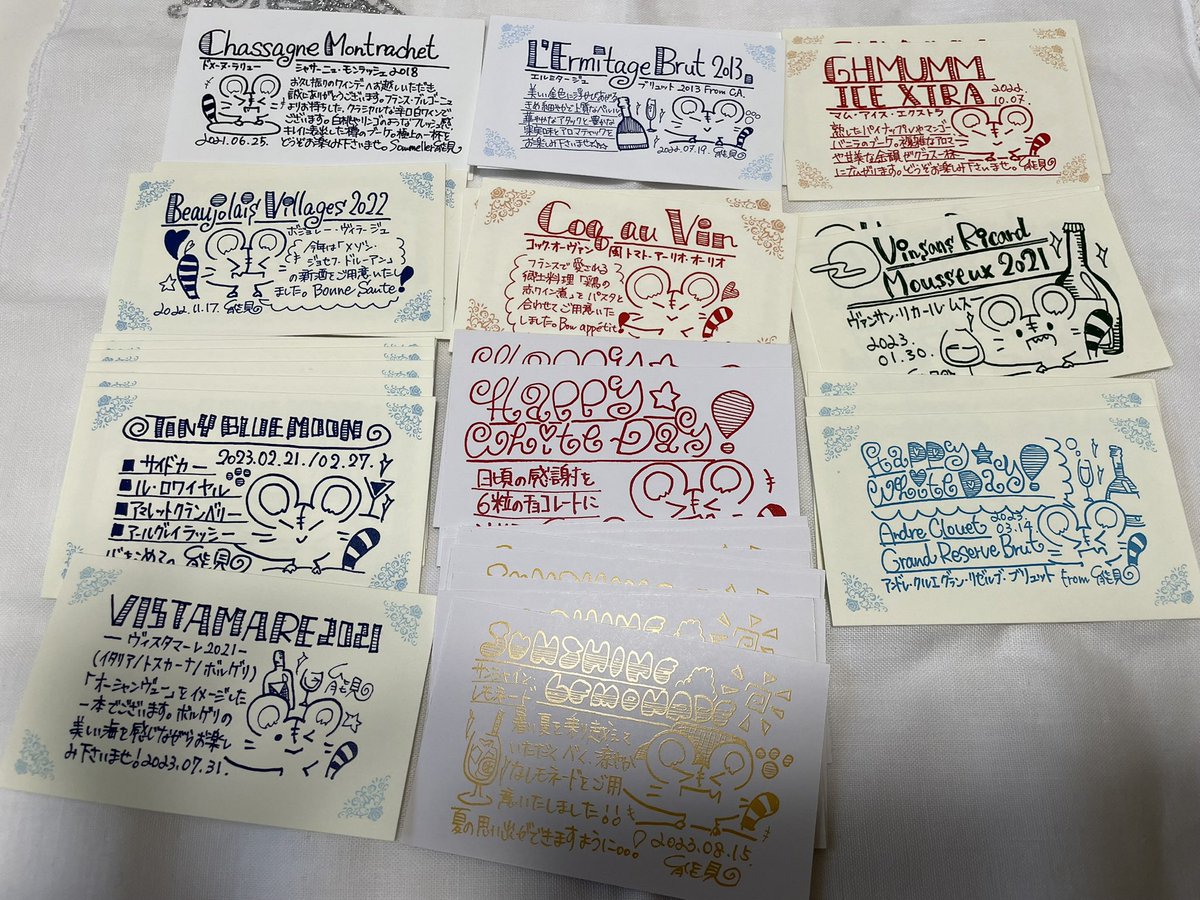 Chassagne Montrachet
ドメーヌ・ラリュー シャサーニュ・モンラッシェ 2018
お久振りのワインデーへお越しいただき、
誠にありがとうございます。フランス・ブルゴーニュ
よりお持ちした、クラシカルな辛口白ワインで
ございます。白桃やリンゴのようなフレッシュ感、
キレイに表現した樽のブーケ。極上の一杯を
どうぞお楽しみ下さいませ。Sommelier 能見
2021.06.25.
L'Ermitage Brut 2013.
エルミタージュ ブリュット 2013 From CA.
美しい金色に浮かびあがる
きめ細やかで上質なペルル
華やかなアタックと豊かな
果実味とアロマティックを
お楽しみ下さいませ☆☆
2022.07.19. 能見
GHMUMM
ICE XTRA 2022.
10.07.
マム・アイス・エクストラ
熟したパイナップルやマンゴー
バニラのブーケ。優雅なアロマ
や甘美な余韻がグラス一杯
にひろがります。どうぞお楽しみ下さいませ。能見
Beaujolais Villages 2022
ボジョレー・ヴィラージュ
今年は「メゾン・
ジョセフ・ドルーアン」
の新酒をご用意いたし
ました。Bonne Sante!
2022.11.17. 能見
Coq au Vin
コック・オー・ヴァン 風 トマト・アーリオ・オーリオ
フランスで愛される
郷土料理「鶏の
赤ワイン煮」をパスタと
合わせてご用意いた
しました。Bon appétit!
Vinsans Ricard
Mousseux 2021
ヴァンサン・リカール ムスー
2023.
01.30.
TINY BLUE MOON
2023.02.21./02.27.
■サイドカー
■ル・ロワイヤル
■アマレットクランベリー
■アールグレイラッシー
能見
Happy
White Day!
日頃の感謝を
6粒のチョコレートに
Happy
White Day!
Andre Clouet 2023
03.14
Grand Reserve Brut
アンドレ・クルエ グラン・リゼルブ・ブリュット from 能見
VISTAMARE 2021
ーヴィスタマーレ 2021ー
(イタリア/トスカーナ/ボルゲリ)
「オーシャンヴュー」をイメージした
一本でございます。ボルゲリの
美しい海を感じながらお楽し
み下さいませ!2023.07.31.
能見
SUNSHINE
LEMONADE
サンシャイン・
レモネード
暑い夏を乗り越えて
いただくべく、爽やか
なレモネードをご用
意いたしました!!
夏の思い出ができますように。。。
2023.08.15.
能見